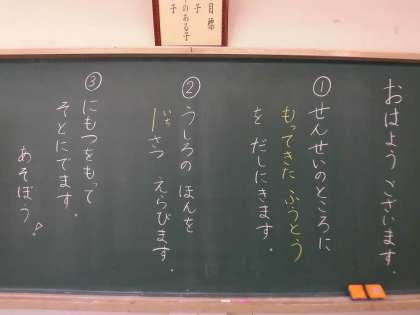 目標
子
のある子
子
おはようございます。
① せんせいのところに
もってきた ふうとう
を だしにきます。
② うしろの ほんを
1さつ えらびます。
いち
③ にもつをもって
そとにでます。
あそぼう!